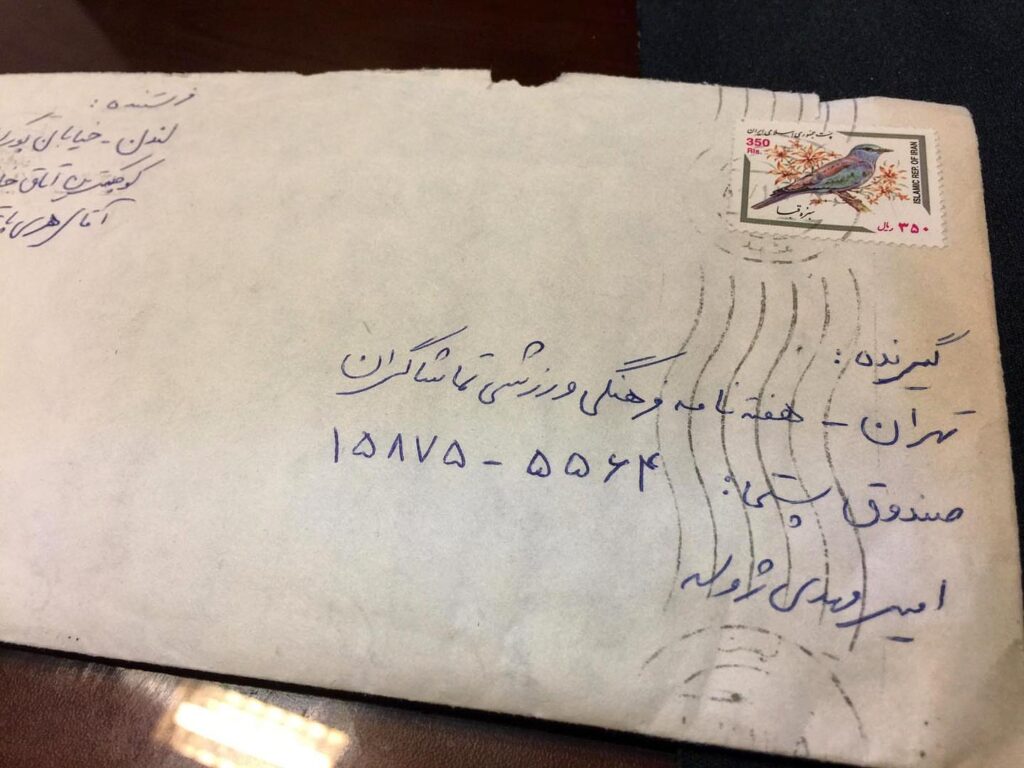 فرستنده :
لندن - خیابان
کوچکترین اتاق
آقای هری
پست جمهوری اسلامی ایران
350
Rls.
ISLAMIC REP. OF IRAN
سبزه قبا
۳۵۰ ریال
گیرنده :
تهران - هفته نامه فرهنگی ورزشی تماشاگران
صندوق پستی : ۱۵۸۷۵ - ۵۵۶۴
امیر مهدی ژوله